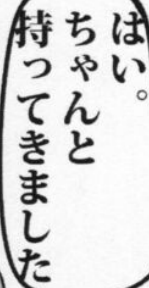 はい。
ちゃんと
持ってきました